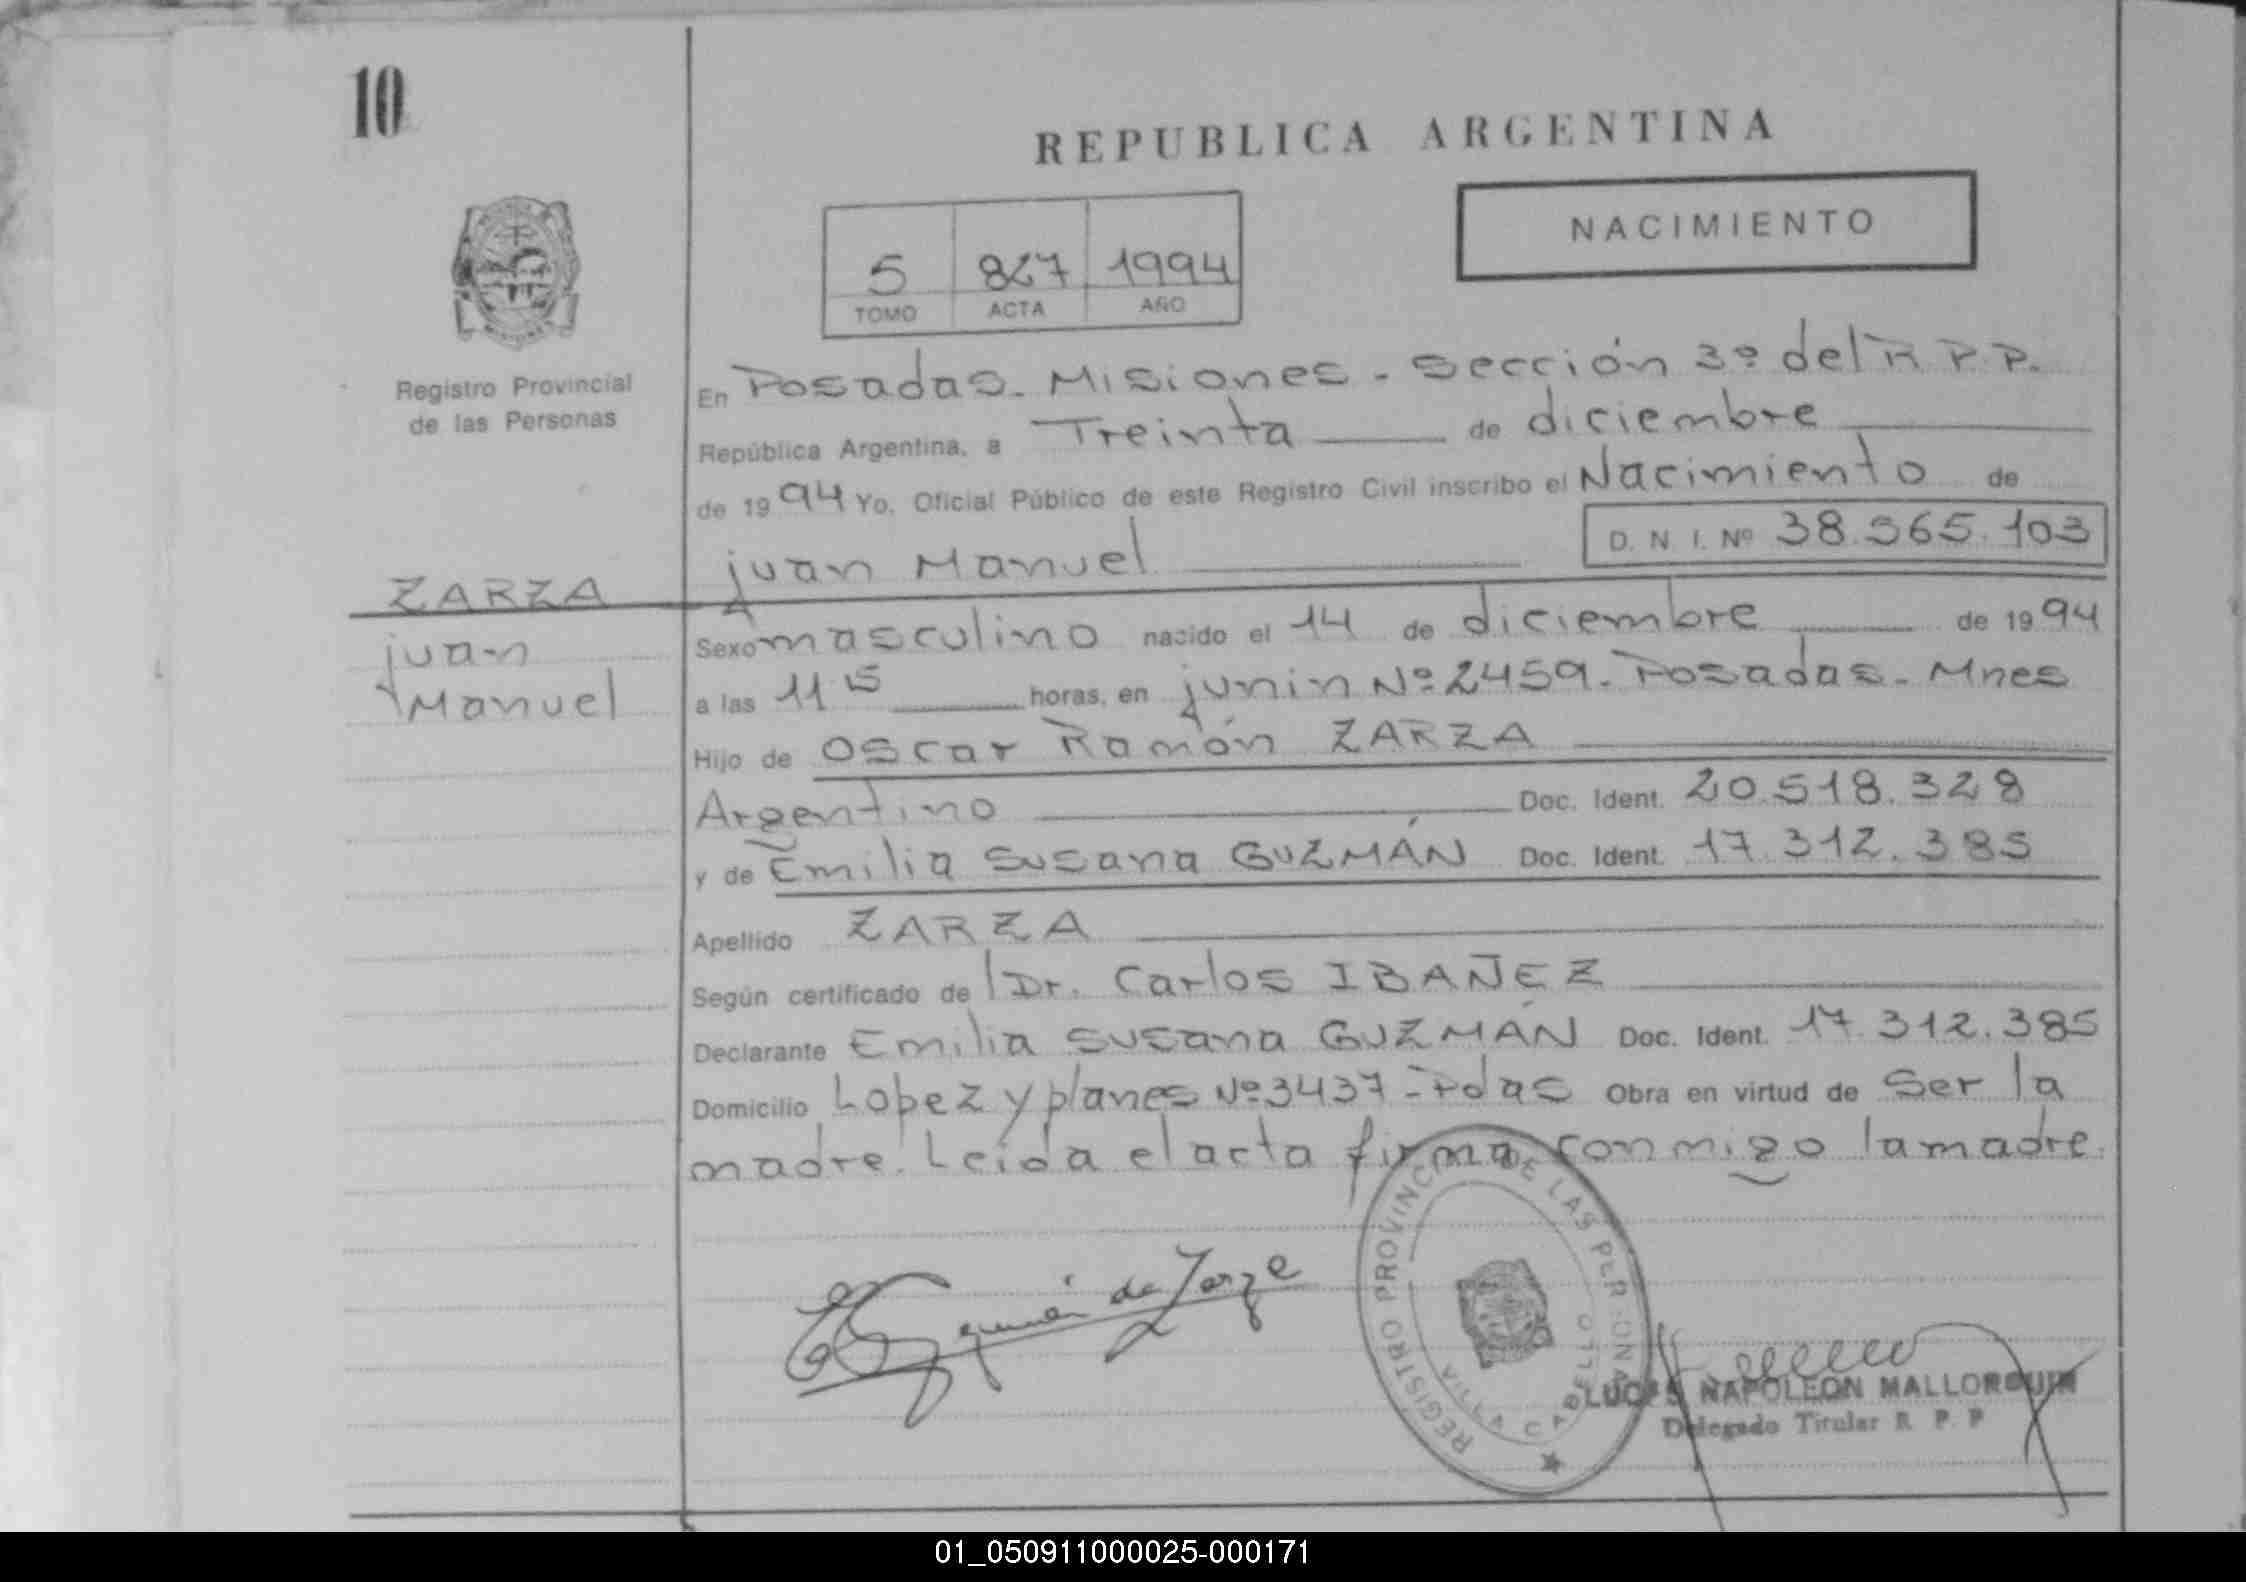 10
REPUBLICA ARGENTINA
NACIMIENTO
5 827 1994
TOMO ACTA AÑO
Registro Provincial
de las Personas
En Posadas - Misiones - Sección 3º del R.P.P.
República Argentina, a Treinta de diciembre
de 1994 Yo, Oficial Público de este Registro Civil inscribo el Nacimiento de
D. N. I. Nº 38.565.103
juan Manuel
ZARZA
juan
Manuel
Sexo masculino nacido el 14 de diciembre de 1994
a las 11 15 horas, en junin Nº 2459. Posadas - Mnes
Hijo de Oscar Ramón ZARZA
Argentino Doc. Ident. 20.518.328
y de Emilia Susana GUZMÁN Doc. Ident. 17.312.385
Apellido ZARZA
Según certificado de Dr. Carlos IBAÑEZ
Declarante Emilia Susana GUZMÁN Doc. Ident. 17.312.385
Domicilio Lopez y planes Nº 3437 - Pdas Obra en virtud de Ser la
madre. Leida el acta firma conmigo la madre.
REGISTRO PROVINCIAL DE LAS PERSONAS
VILLA CABELLO
de Zarza
LUCAS NAPOLEON MALLORQUIN
Delegado Titular R. P. P
01_050911000025-000171